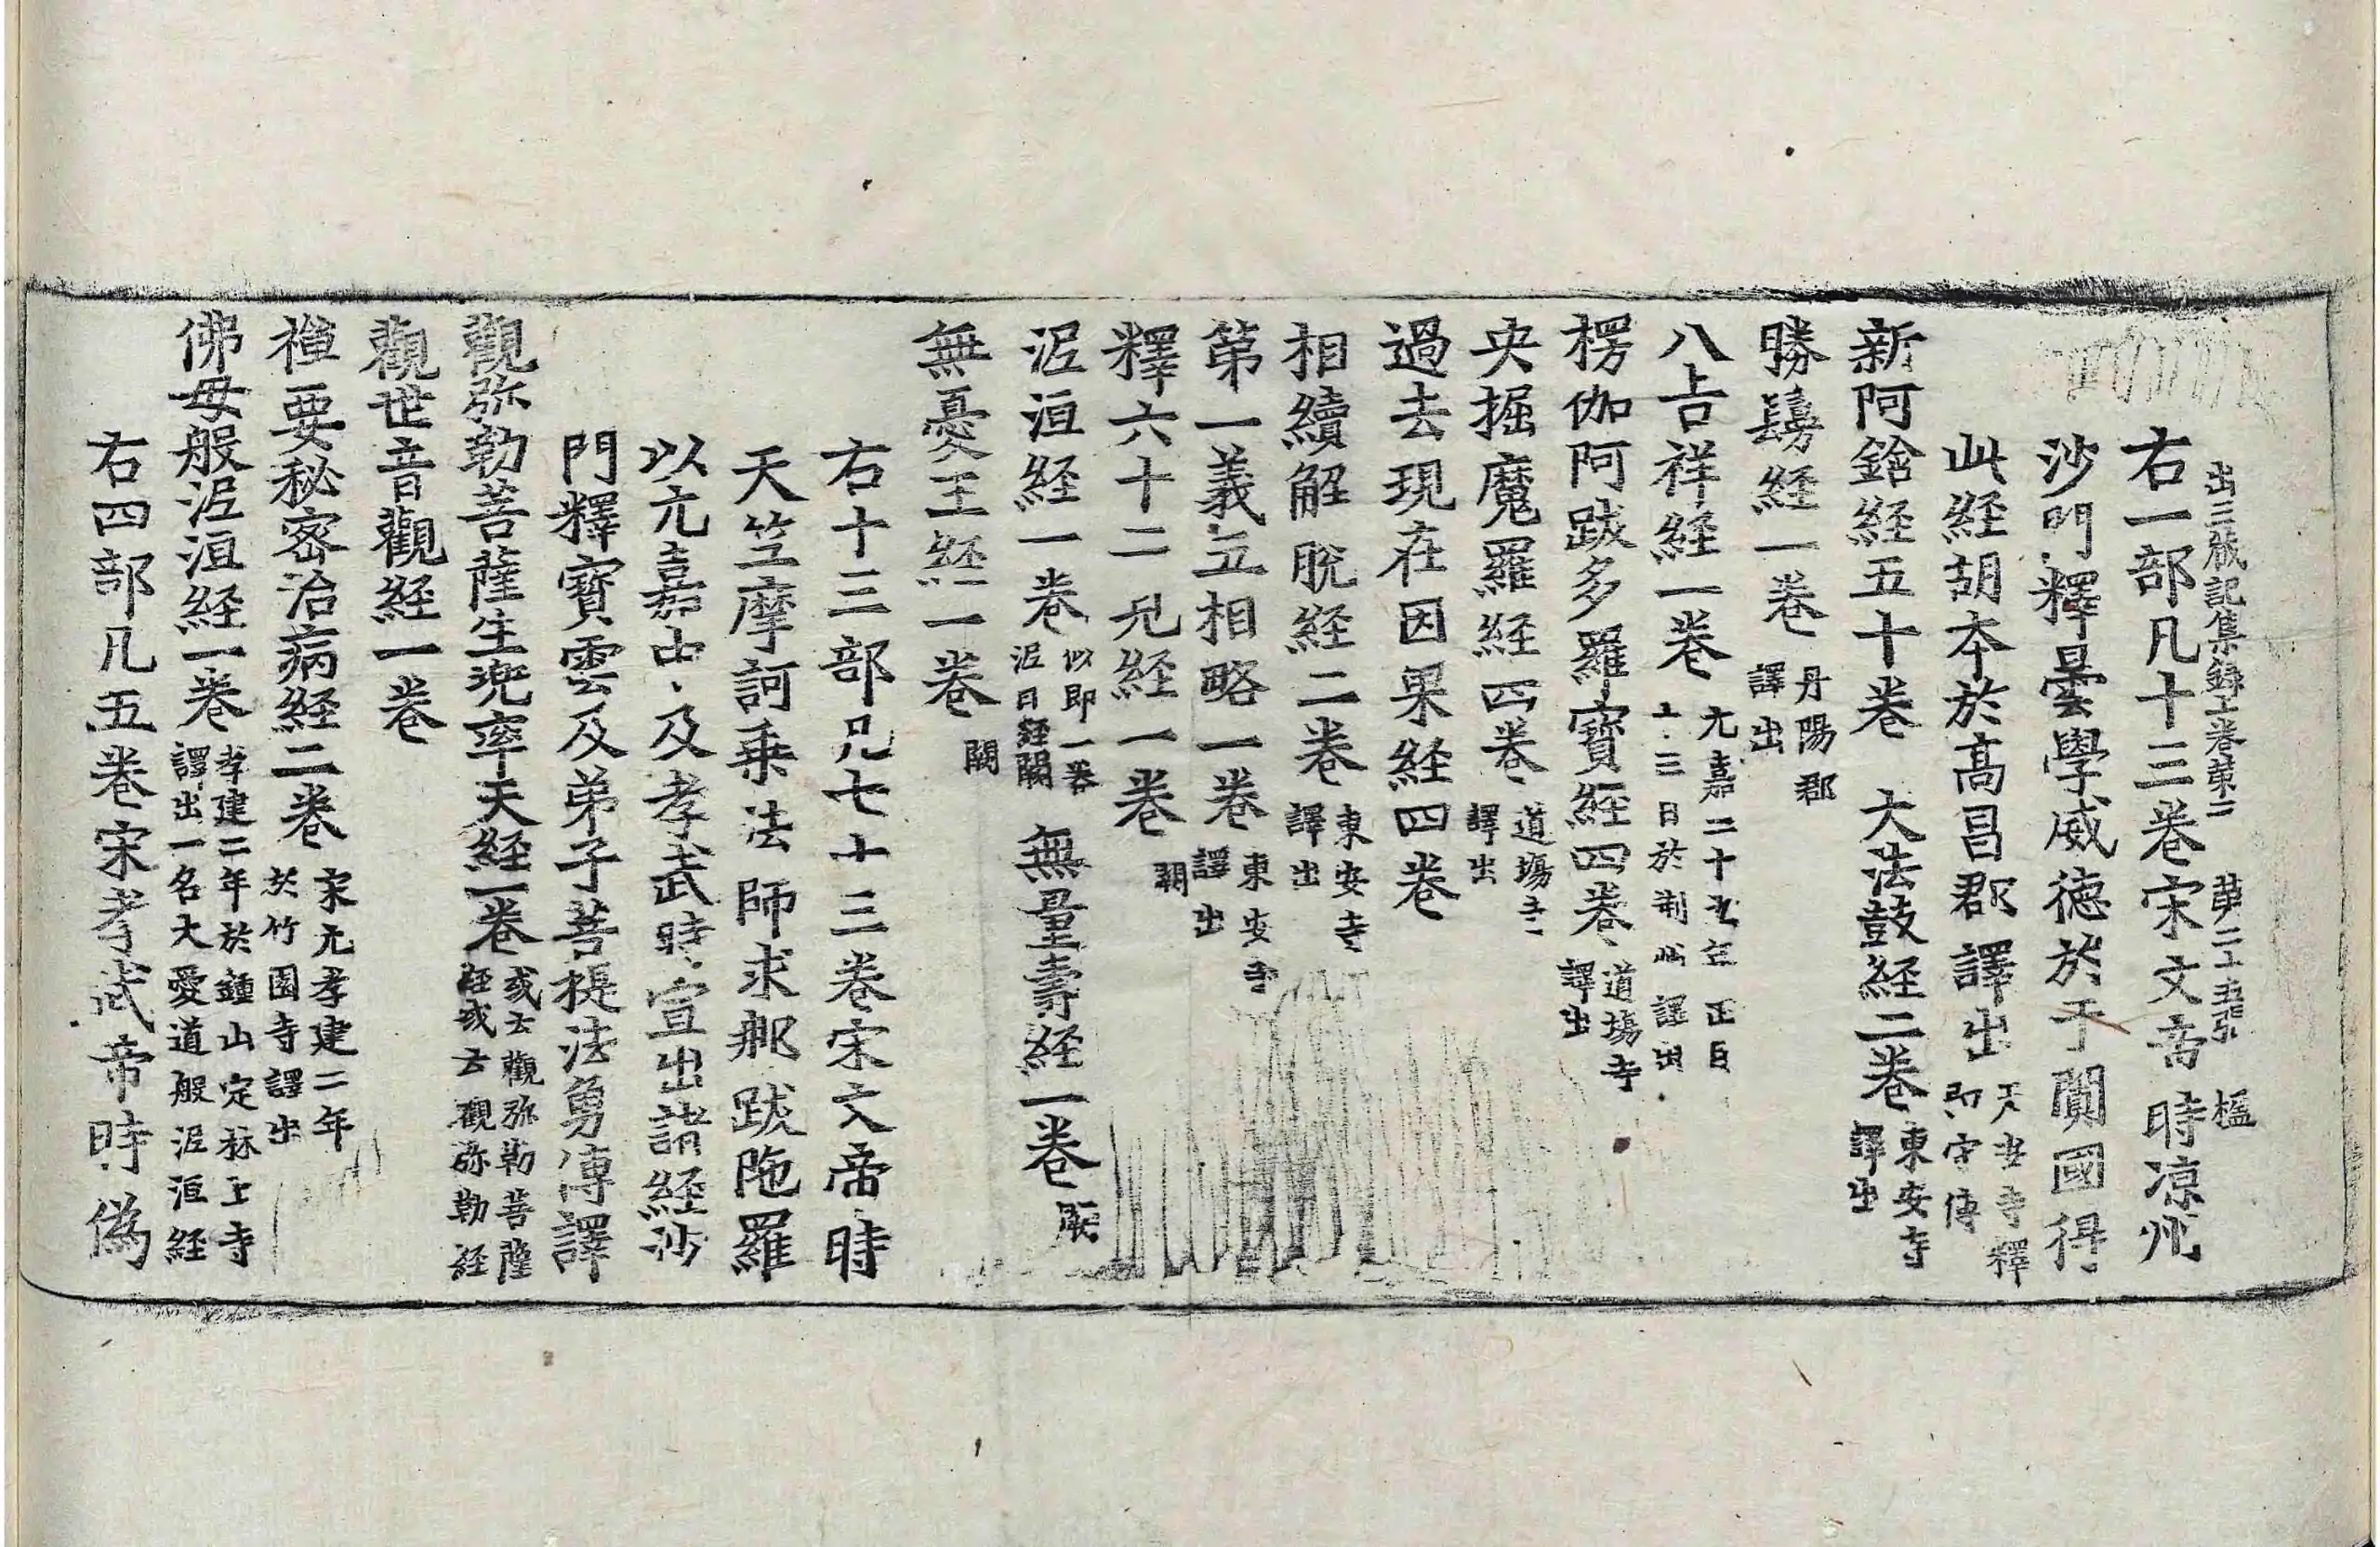 出三藏記集錄上卷第二 第二十五張 楹
右一部凡十三卷宋文帝時凉州
沙門釋曇學威德於于闐國得
此經胡本於高昌郡譯出 天安寺釋
即守傳
新阿鋡経五十卷 大法鼓経二卷 東安寺
譯出
勝鬘経一卷 丹陽郡
譯出
八吉祥経一卷 元嘉二十九年正月
十三日於荆州譯出
楞伽阿跋多羅寶経四卷 道場寺
譯出
央掘魔羅経四卷 道場寺
譯出
過去現在因果経四卷
相續解脫経二卷 東安寺
譯出
第一義五相略一卷 東安寺
譯出
釋六十二見経一卷 闕
泥洹経一卷 似即一卷
泥日経闕 無量壽経一卷 闕
無憂王経一卷 闕
右十三部凡七十三卷宋文帝時
天竺摩訶乗法師求那跋陁羅
以元嘉中及孝武時宣出諸経沙
門釋寶雲及弟子菩提法勇傳譯
觀弥勒菩薩生兜率天経一卷 或云觀弥勒菩薩
経或云觀弥勒経
觀世音觀経一卷
禪要秘密治病経二卷 宋元孝建二年
於竹園寺譯出
佛母般泥洹経一卷 孝建二年於鍾山定林上寺
譯出一名大愛道般泥洹経
右四部凡五卷宋孝武帝時偽